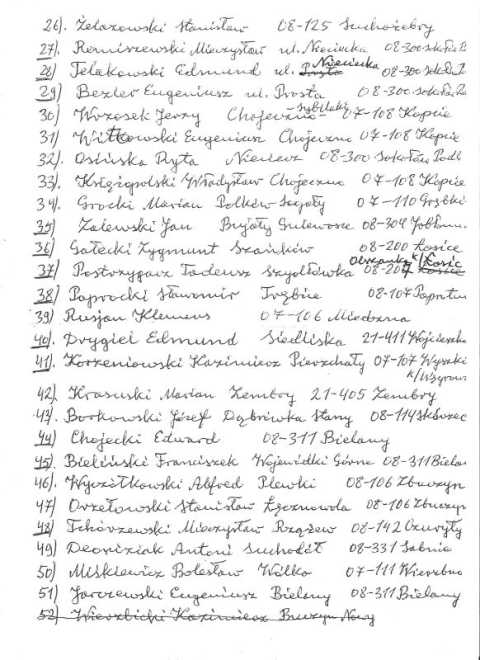 26). Żelazowski Stanisław 08-125 Suchożebry
27). Remiszewski Mieczysław ul. Nieciecka 08-300 Sokołów P.
28) Telakowski Edmund ul. Prosta Nieciecka 08-300 Sokołów
29) Bezler Eugeniusz ul. Prosta 08-300 Sokołów
30) Wrzosek Jerzy Chojeczno-Sybilaki 07-108 Kopcie
31) Witkowski Eugeniusz Chojeczno 07-108 Kopcie
32). Osińska Ryta Nieciecz 08-300 Sokołów Podl
33). Księżopolski Władysław Chojeczno 07-108 Kopcie
34). Grocki Marian Polków Sagały 07-110 Grębki
35) Zalewski Jan Bujały Gniewosze 08-304 Jabłonn.
36) Sałecki Zygmunt Szańków 08-200 Łosice
37) Postrzygacz Tadeusz Szydłówka 08-207 Łosice Olszanka k/Łosic
38) Paprocki Sławomir Trębice 08-107 Paprotn
39) Rusjan Klemens 07-106 Miedzna
40) Drygiel Edmund Siedliska 21-411 Wojcieszk
41) Korzeniowski Kazimierz Pierzchały 07-107 Wyszki
k/Węgrow
42) Krasuski Marian Zembry 21-405 Zembry
43). Borkowski Józef Dąbrówka Stany 08-114 Skórzec
44) Chojecki Edward 08-311 Bielany
45). Bieliński Franciszek Wojewódki Górne 08-311 Bielan
46). Wyczółkowski Alfred Plewki 08-106 Zbuczyn
47) Orzełowski Stanisław Łęcznowola 08-106 Zbuczyn
48) Tchórzewski Mieczysław Rzążew 08-142 Czuryły
49) Deoniziak Antoni Suchodół 08-331 Sabnie
50) Miśkiewicz Bolesław Wólka 07-111 Wierzbno
51) Jarczewski Eugeniusz Bielany 08-311 Bielany
52) Wierzbicki Kazimierz Bzuzyn Nowy